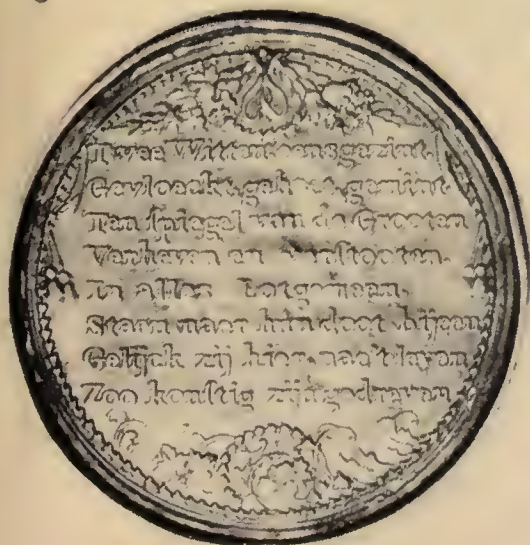 Twee Witten eensgezint,
Gevloeckt, gehaet, gemint
Ten spiegel van de Grooten
Verheven en verstooten.
In Lotgemeen,
Staen naer hun doot bijeen
Gelijk zij hier naa't leven
Zoo konstig zijn gedreven